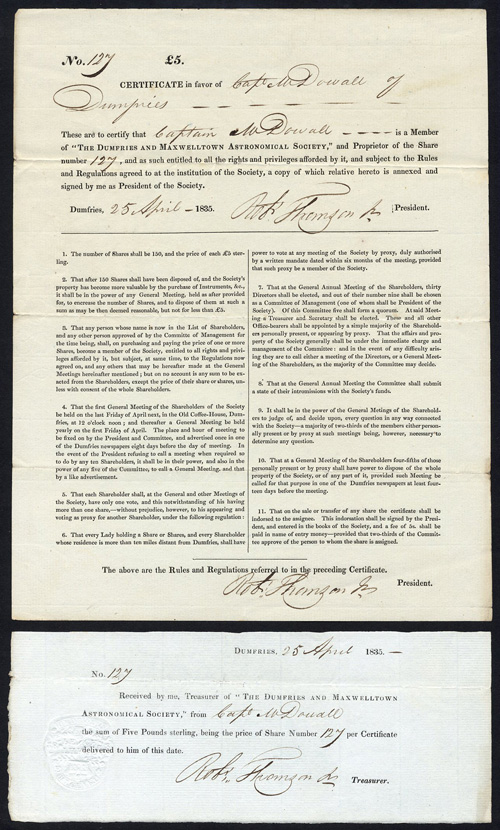 No. 127 £5.
CERTIFICATE in favor of Capt. McDowall of
Dumfries
These are to certify that Captain McDowall is a Member
of "The Dumfries and Maxwelltown Astronomical Society," and Proprietor of the Share
number 127, and as such entitled to all the rights and privileges afforded by it, and subject to the Rules
and Regulations agreed to at the institution of the Society, a copy of which relative hereto is annexed and
signed by me as President of the Society.
Dumfries, 25 April 1835. Robt. Thomson Jr. President.
1. The number of Shares shall be 150, and the price of each £5 ster-
ling.
2. That after 150 Shares shall have been disposed of, and the Society's
property has become more valuable by the purchase of Instruments, &c.,
it shall be in the power of any General Meeting, held as after provided
for, to encrease the number of Shares, and to dispose of them at such a
sum as may be then deemed reasonable, but not for less than £5.
3. That any person whose name is now in the List of Shareholders,
and any other person approved of by the Committee of Management for
the time being, shall, on purchasing and paying the price of one or more
Shares, become a Member of the Society, entitled to all rights and privi-
leges afforded by it, but subject, at same time, to the Regulations now
agreed on, and any others that may be hereafter made at the General
Meetings hereinafter mentioned; but on no account is any sum to be ex-
acted from the Shareholders, except the price of their share or shares, un-
less with consent of the whole Shareholders.
4. That the first General Meeting of the Shareholders of the Society
be held on the last Friday of April next, in the Old Coffee-House, Dum-
fries, at 12 o'clock noon; and thereafter a General Meeting be held
yearly on the first Friday of April. The place and hour of meeting to
be fixed on by the President and Committee, and advertised once in one
of the Dumfries newspapers eight days before the day of meeting. In
the event of the President refusing to call a meeting when required so
to do by any ten Shareholders, it shall be in their power, and also in the
power of any five of the Committee, to call a General Meeting, and that
by a like advertisement.
5. That each Shareholder shall, at the General and other Meetings of
the Society, have only one vote, and this notwithstanding of his having
more than one share,—without prejudice, however, to his appearing and
voting as proxy for another Shareholder, under the following regulation:
6. That every Lady holding a Share or Shares, and every Shareholder
whose residence is more than ten miles distant from Dumfries, shall have
power to vote at any meeting of the Society by proxy, duly authorised
by a written mandate dated within six months of the meeting, provided
that such proxy be a member of the Society.
7. That at the General Annual Meeting of the Shareholders, thirty
Directors shall be elected, and out of their number nine shall be chosen
as a Committee of Management (one of whom shall be President of the
Society). Of this Committee five shall form a quorum. At said Meet-
ing a Treasurer and Secretary shall be elected. These and all other
Office-bearers shall be appointed by a simple majority of the Sharehold-
ers personally present, or appearing by proxy. That the affairs and pro-
perty of the Society generally shall be under the immediate charge and
management of the Committee: and in the event of any difficulty aris-
ing they are to call either a meeting of the Directors, or a General Meet-
ing of the Shareholders, as the majority of the Committee may decide.
8. That at the General Annual Meeting the Committee shall submit
a state of their intromissions with the Society's funds.
9. It shall be in the power of the General Meetings of the Sharehold-
ers to judge of, and decide upon, every question in any way connected
with the Society—a majority of two-thirds of the members either person-
ally present or by proxy at such meetings being, however, necessary to
determine any question.
10. That at a General Meeting of the Shareholders four-fifths of those
personally present or by proxy shall have power to dispose of the whole
property of the Society, or of any part of it, provided such Meeting be
called for that purpose in one of the Dumfries newspapers at least four-
teen days before the meeting.
11. That on the sale or transfer of any share the certificate shall be
indorsed to the assignee. This indorsation shall be signed by the Presi-
dent, and entered in the books of the Society, and a fee of 5s. shall be
paid in name of entry money—provided that two-thirds of the Commit-
tee approve of the person to whom the share is assigned.
The above are the Rules and Regulations referred to in the preceding Certificate.
Robt. Thomson Jr. President.
Dumfries, 25 April 1835.—
No. 127
Received by me, Treasurer of "The Dumfries and Maxwelltown
Astronomical Society," from Capt. McDowall
the sum of Five Pounds sterling, being the price of Share Number 127 per Certificate
delivered to him of this date.
Robt. Thomson Jr. Treasurer.